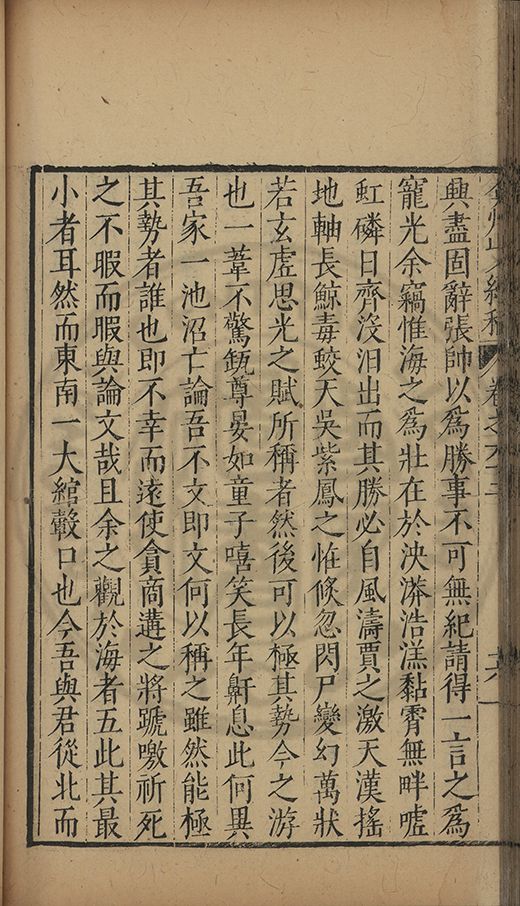 弇州山人續稿 卷之六十三 十六
興盡固辭張帥以爲勝事不可無紀請得一言之爲
寵光余竊惟海之爲壯在於泱漭浩漾黏霄無畔噓
虹磷日齊沒汨出而其勝必自風濤賈之激天漢搖
地軸長鯨毒蛟天吳紫鳳之恠倐忽閃尸變幻萬狀
若玄虛思光之賦所稱者然後可以極其勢今之游
也一葦不驚甀尊晏如童子嘻笑長年鼾息此何異
吾家一池沼亡論吾不文即文何以稱之雖然能極
其勢者誰也即不幸而遠使貪商遘之將號噭祈死
之不暇而暇與論文哉且余之觀於海者五此其最
小者耳然而東南一大綰轂口也今吾與君從北而